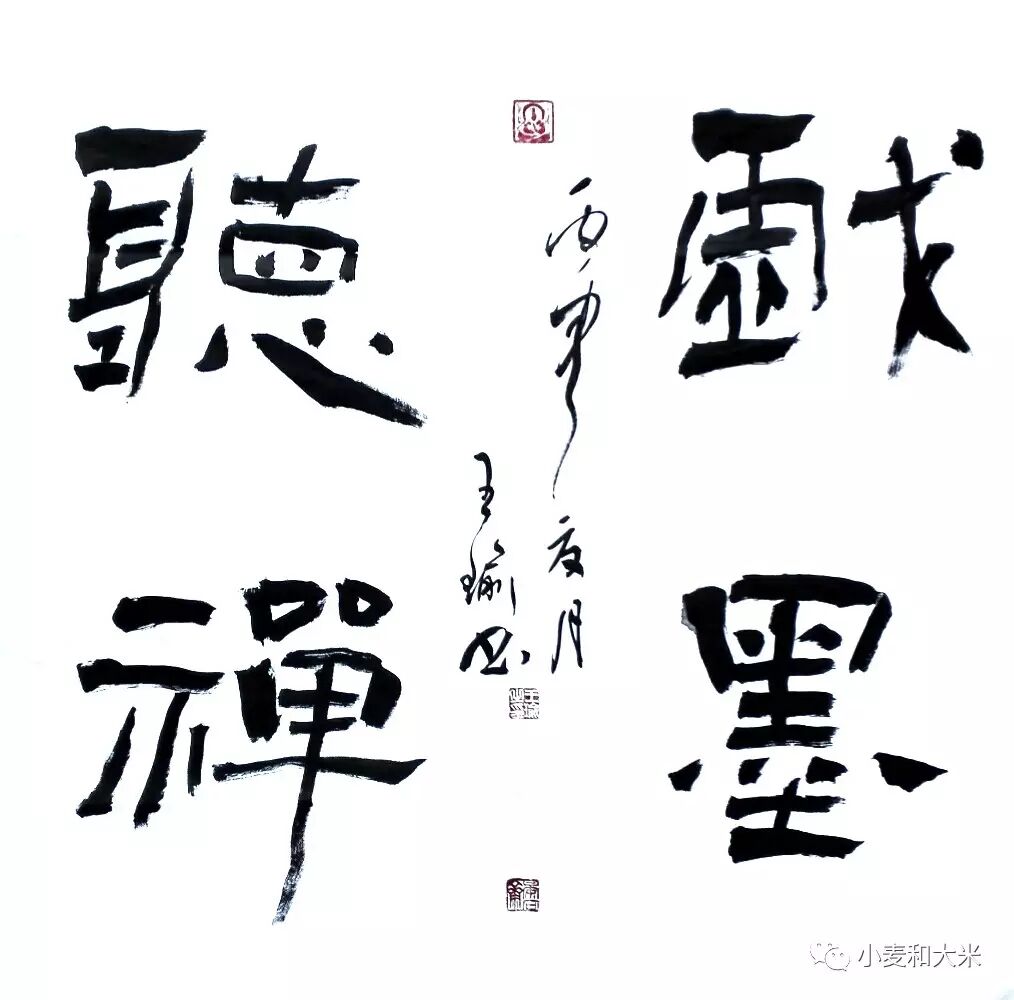 戯墨
聽禪
丙申夏月
王瑜书
小麦和大米